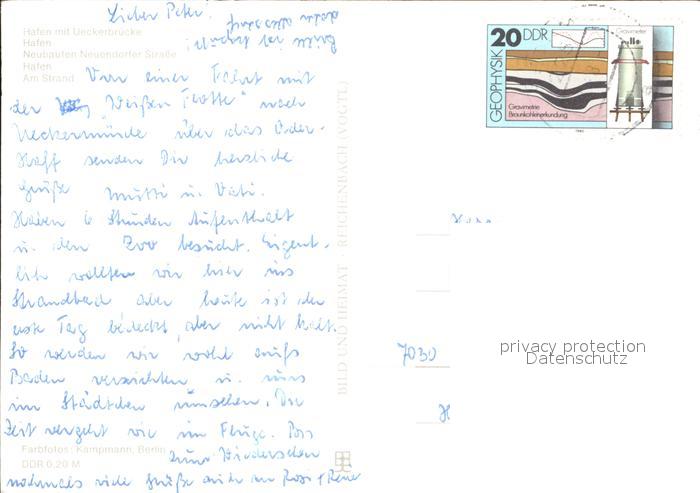 Lieber Peter.
Hafen mit Ueckerbrücke
Hafen
Neubauten Neuendorfer Straße
Hafen
Am Strand
Von einer Fahrt mit
der "Weißen Flotte" nach
Ueckermünde über das Oder-
Haff senden Dir herzliche
Grüße Mutti u. Vati.
Haben 6 Stunden Aufenthalt
u. den Zoo besucht. Eigent-
lich wollten wir hier ins
Strandbad aber heute ist der
erste Tag bedeckt, aber nicht kalt.
So werden wir wohl aufs
Baden verzichten u. uns
im Städtchen umsehen. Die
Zeit vergeht wie im Fluge. Bis
zum Wiedersehen
nochmals viele Grüße auch an Rosi + René
Farbfotos: Kampmann, Berlin
DDR 0,20 M
BILD UND HEIMAT · REICHENBACH (VOGTL)
GEOPHYSIK
20 DDR
Gravimeter
Gravimetrie
Braunkohlenerkundung
1980
7030
privacy protection
Datenschutz